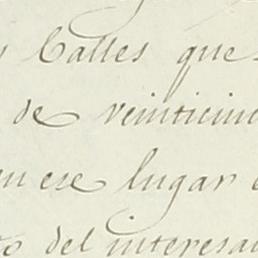 s Calles que
de veinticin
en ese lugar
to del interesa